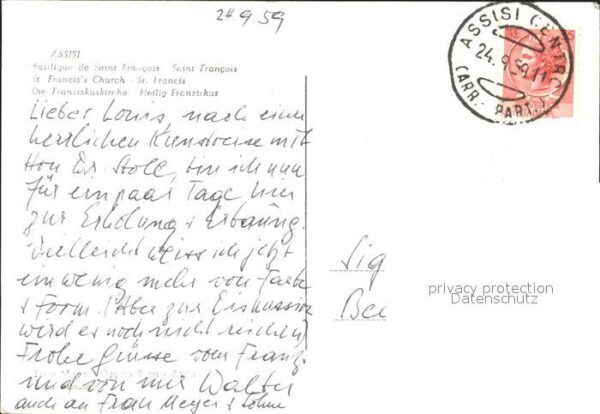 24 9 59
ASSISI
Basilique de Saint François - Saint François
St Francis's Church - St. Francis
Die Franziskuskirche - Heilig Franziskus
ASSISI CENTRO
24.9.59.11
(ARR. PART.)
Lieber Louis, nach einer
herrlichen Kunstreise mit
Hon Dr Stoll, bin ich nun
für ein paar Tage hier
zur Erholung + Erbauung.
Vielleicht weiss ich jetzt
ein wenig mehr von Farbe
+ Form. (Aber zur Diskussion
wird es noch nicht reichen)
Frohe Grüsse vom Franz.
und von mir Walter
auch an Frau Meyer + Söhne
Sig
Bei
privacy protection
Datenschutz